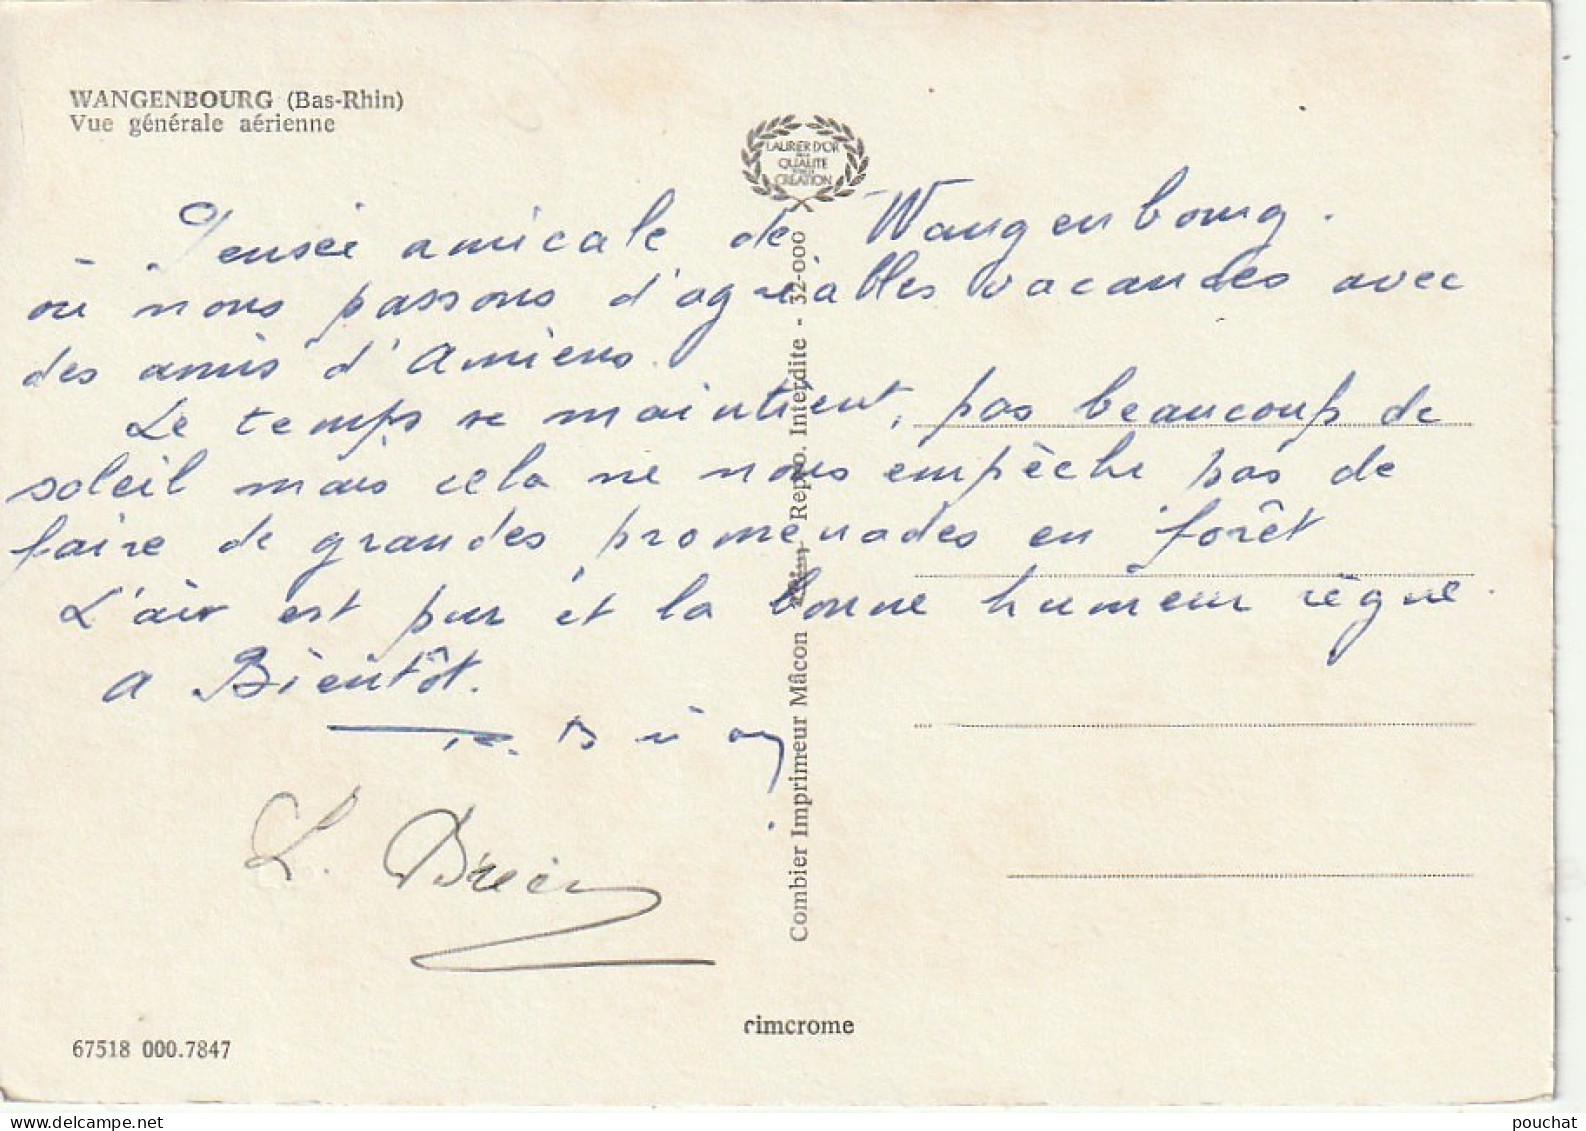 WANGENBOURG (Bas-Rhin)
Vue générale aérienne
LAURIER D'OR
QUALITE
CREATION
Pensée amicale de Wangenbourg.
où nous passons d'agréables vacandes avec
des amis d'Amiens.
Le temps se maintient, pas beaucoup de
soleil mais cela ne nous empèche pas de
faire de grandes promenades en forêt
L'air est pur et la bonne humeur règne.
a Bientôt.
L.
Combier Imprimeur Mâcon
Repro. Interdite - 32-000
cimcrome
67518 000.7847
pouchat